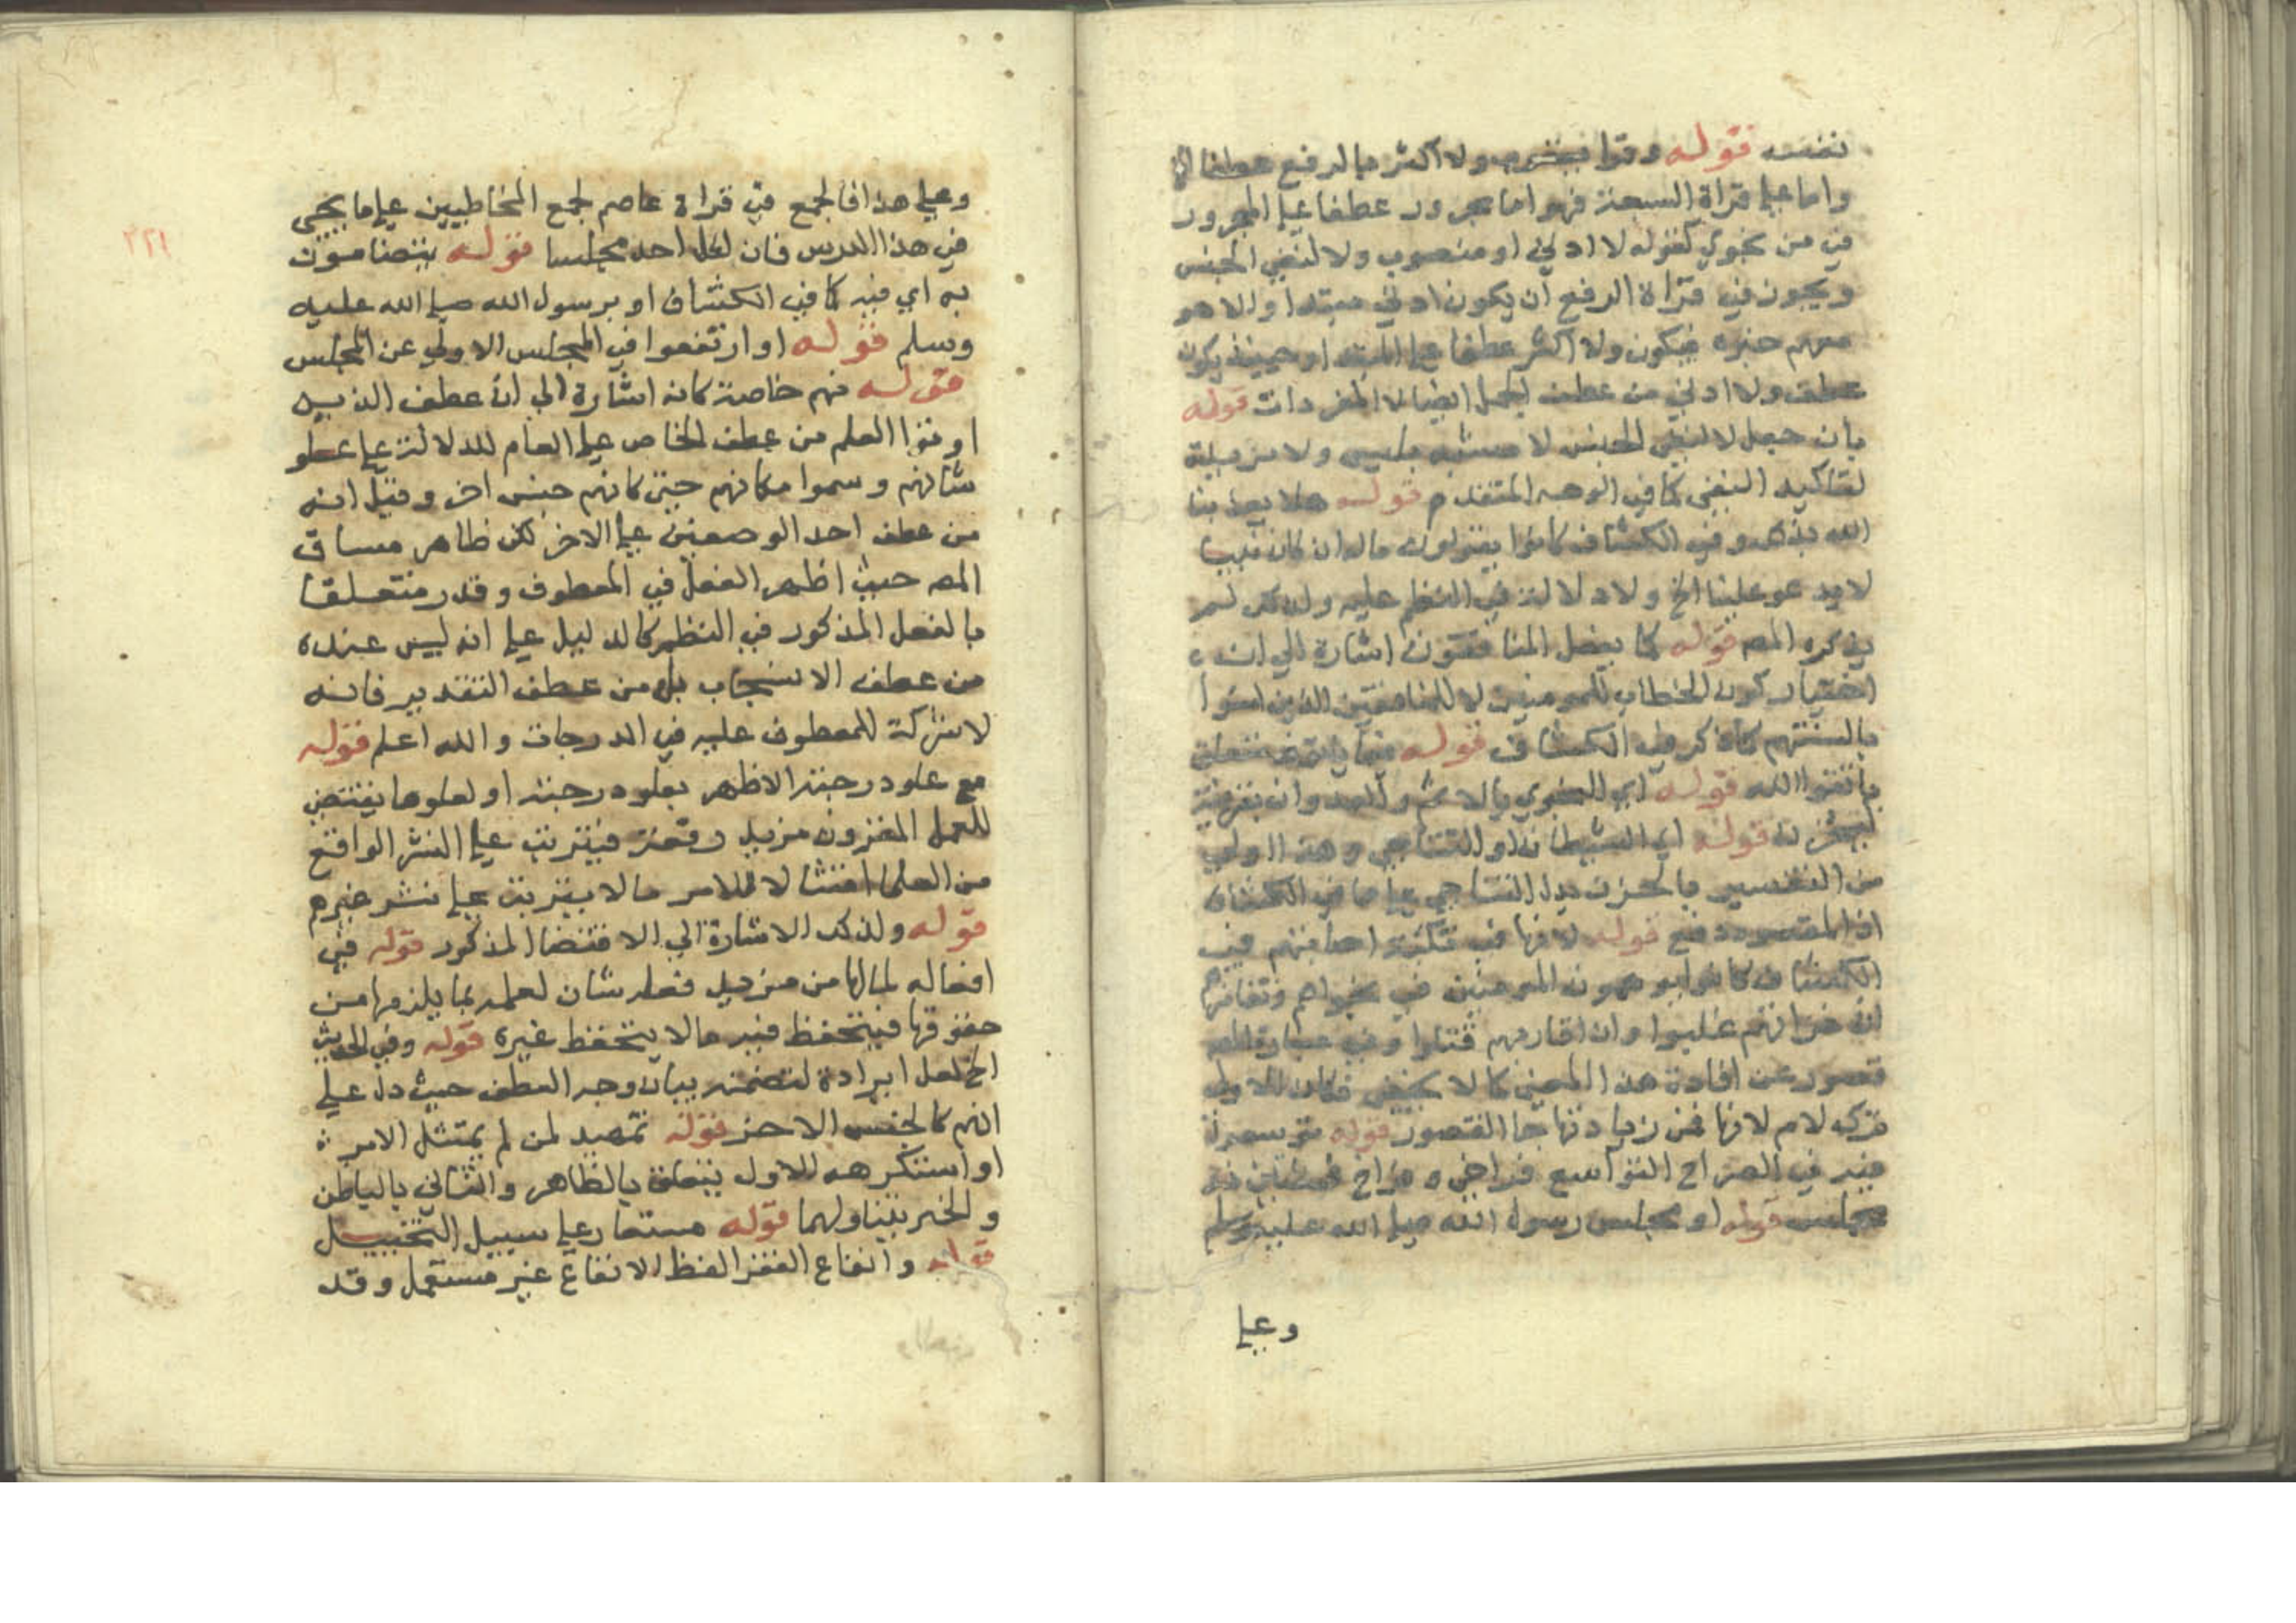 نفسه قوله وقرا يعقوب ولا اكثر بالرفع عطفا الخ
واما على قراة السبعة فهو اما مجرور عطفا على المجرور
في من نجوي كقوله لا ادني او منصوب ولا لنفي الجنس
ويجوز في قراة الرفع ان يكون ادني مبتدا والا هو
معهم خبره فيكون ولا اكثر عطفا على المبتدا وحينئذ يكون
عطف ولا ادني من عطف الجمل ايضا لا المفردات قوله
بان جعل لا لنفي الجنس لا مشبه بليس ولا مزيدة
لتاكيد النفي كما في الوجه المتقدم قوله هلا يعذبنا
الله بذلك وفي الكشاف كانوا يقولون ما له ان كان نبيا
لا يدعو علينا الخ ولا دلالة في النظم عليه ولذلك لم
يذكره المصـ قوله كما يفعل المنافقون اشارة الي انه
اختيار كون الخطاب للمومنين لا للمنافقين الذين امنوا
بالسنتهم كما ذكر في الكشاف قوله فيما متعلق
باتقوا الله قوله اي النجوي بالاثم والعدوان بقرينة
ليحزن قوله اي الشيطان او التناجي وهذا اولي
من التفسير بالحزن بدل التناجي على ما في الكشاف
اذ المقصود دفع قوله
الكشاف كانوا يوهمون المومنين في نجواهم وتغامزهم
ان غزاتهم غلبوا وان اقاربهم قتلوا وفي عبارة المصـ
قصور عن افادة هذا المعني كما لا يخفي فكان الاولي
تركه لام لانها فمن زيادتها جا القصور قوله توسعوا
فيه في الصراح التواسع فراخ
مجلس قوله او مجلس رسول الله صلي الله عليه وسلم
وعلي
٢٢١
وعلي هذا فالجمع في قراة عاصم لجمع المخاطبين على ما يجي
في هذا الدرس فان لكل احد مجلسا قوله يتضامون
به اي فيه كما في الكشاف او برسول الله صلي الله عليه
وسلم قوله او ارتفعوا في المجلس الاولي عن المجلس
قوله منهم خاصة كانه اشارة الي ان عطف الذين
اوتوا العلم من عطف الخاص على العام للدلالة على علو
شانهم وسموا مكانهم حتي كانهم جنس اخر وقيل انه
من عطف احد الوصفين على الاخر لكن ظاهر مساق
المصـ حيث اظهر الفعل في المعطوف وقدر متعلقا
بالفعل المذكور في النظم كالدليل على انه ليس عنده
من عطف الانسحاب بل من عطف التقدير فانه
لا شركة للمعطوف عليه في الدرجات والله اعلم قوله
مع علو درجته الاظهر بعلو درجته او لعلوها يقتضي
للعمل المقرون مزيد رفعة فيترتب على النشر الواقع
من العلما امتثالا للامر ما لا يترتب على نشر غيرهم
قوله ولذلك الاشارة الي الاقتضا المذكور قوله في
افعاله لما لها من مزيد فعله شان لعلمه بما يلزمها من
حقوقها فيتحفظ فيه ما لا يتحفظ غيره قوله وفي الحديث
الخ لعل ايراده لتضمنه بيان وجه العطف حيث دل على
انهم كالجنس الاخر قوله تهديد لمن لم يمتثل الامر
او استكرهه للاول يتعلق بالظاهر والثاني بالباطن
والخبر يتناولهما قوله مستعار على سبيل التخييل
قوله وانفاع الفقرا لفظ الانفاع غير مستعمل وقد